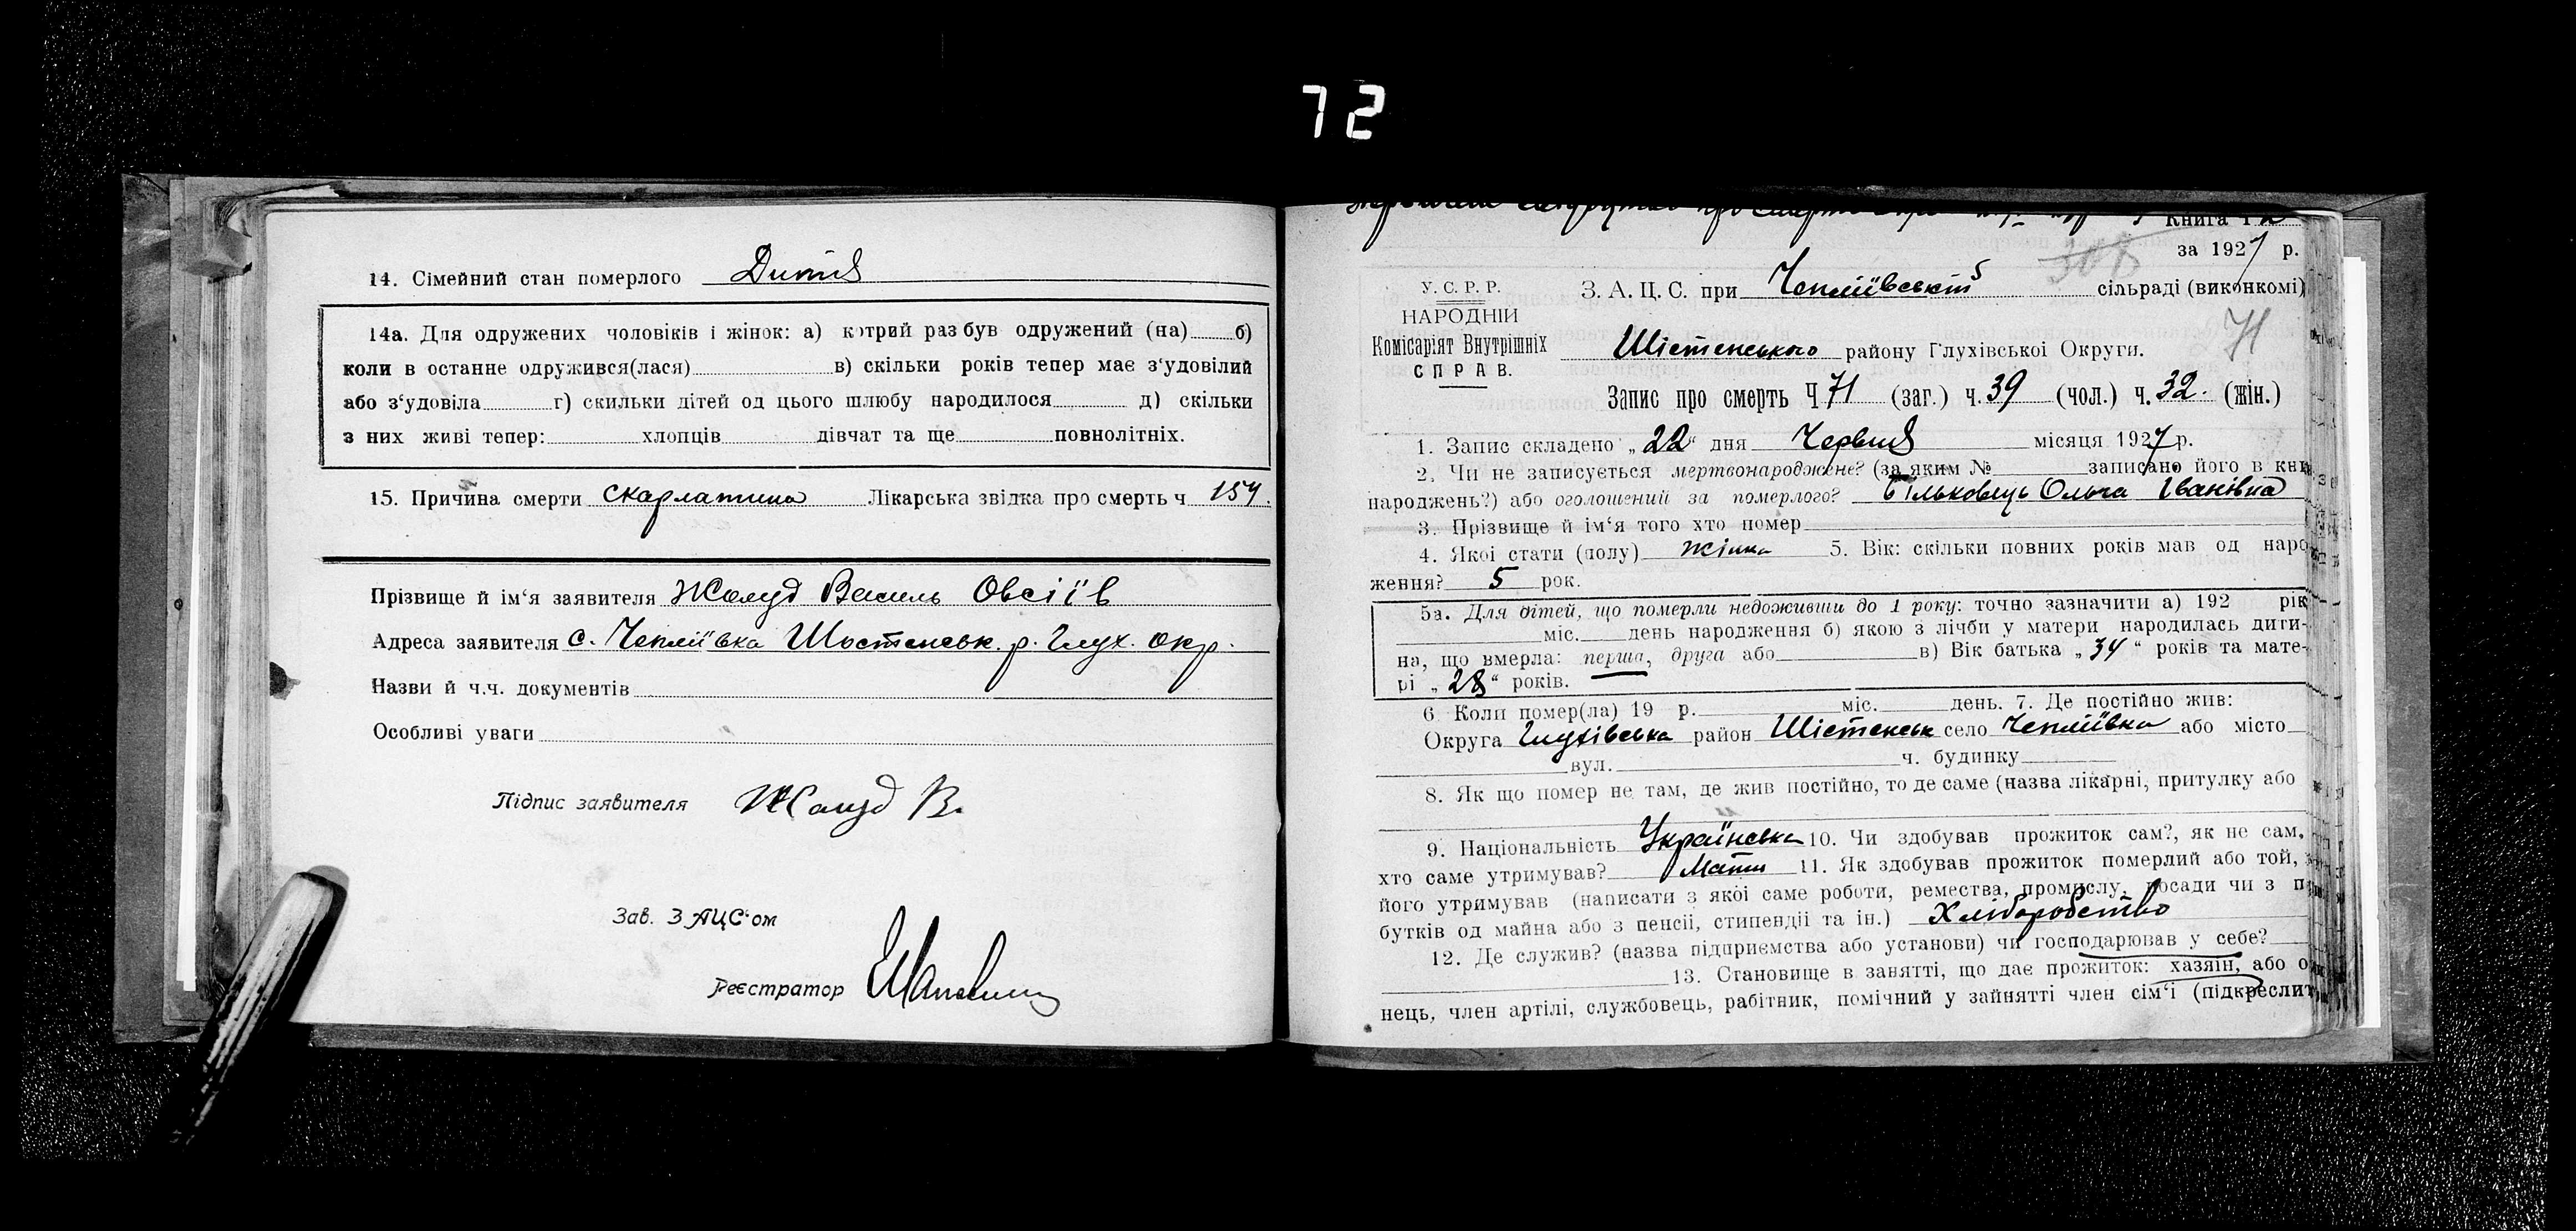 72
14. Сімейний стан померлого Дитя
14а. Для одружених чоловіків і жінок: а) котрий раз був одружений (на) б)
коли в останне одружився(лася) в) скільки років тепер має з‘удовілий
або з‘удовіла г) скильки дітей од цього шлюбу народилося д) скільки
з них живі тепер: хлопців дівчат та ще повнолітніх.
15. Причина смерти скарлатина Лікарська звідка про смерть ч 154.
Прізвище й ім‘я заявителя Жолуд Василь Овсіїв
Адреса заявителя с. Чепліївка Шостенськ. р. Глух. окр.
Назви й ч.ч. документів
Особливі уваги
Підпис заявителя Жолуд В.
Зав. ЗАЦС‘ом
Реєстратор
Книга
за 1927 р.
У. С. Р. Р. З. А. Ц. С. при Чепліївській сільраді (виконкомі)
НАРОДНІЙ
71
Комісаріят Внутрішніх Шістенського району Глухівської Округи.
СПРАВ.
Запис про смерть Ч 71 (заг.) ч. 39 (чол.) ч. 32. (жін.)
1. Запис складено „22“ дня Червня місяця 1927 р.
2. Чи не записується мертвонароджене? (за яким № записано його в кни
народжень?) або оголошений за померлого? Більковець Ольга Іванівна
3. Прізвище й ім‘я того хто помер
4. Якої стати (полу) жінка 5. Вік: скільки повних років мав од наро
ження? 5 рок.
5а. Для дітей, що померли недоживши до 1 року: точно зазначити а) 192 рік
міс. день народження б) якою з лічби у матери народилась дити-
на, що вмерла: перша, друга або в) Вік батька „34“ років та мате-
рі „28“ років.
6 Коли помер(ла) 19 р. міс. день. 7. Де постійно жив:
Округа Глухівська район Шістенськ село Чепліївка або місто
вул. ч. будинку
8. Як що помер не там, де жив постійно, то де саме (назва лікарні, притулку або
9. Національність Українська 10. Чи здобував прожиток сам?, як не сам,
хто саме утримував? Мати 11. Як здобував прожиток померлий або той,
його утримував (написати з якої саме роботи, ремества, промислу, посади чи з п
бутків од майна або з пенсії, стипендії та ін.) Хліборобство
12. Де служив? (назва підприємства або установи) чи господарював у себе?
13. Становище в занятті, що дає прожиток: хазяїн, або о
нець, член артілі, службовець, рабітник, помічний у зайнятті член сім‘ї (підкреслит